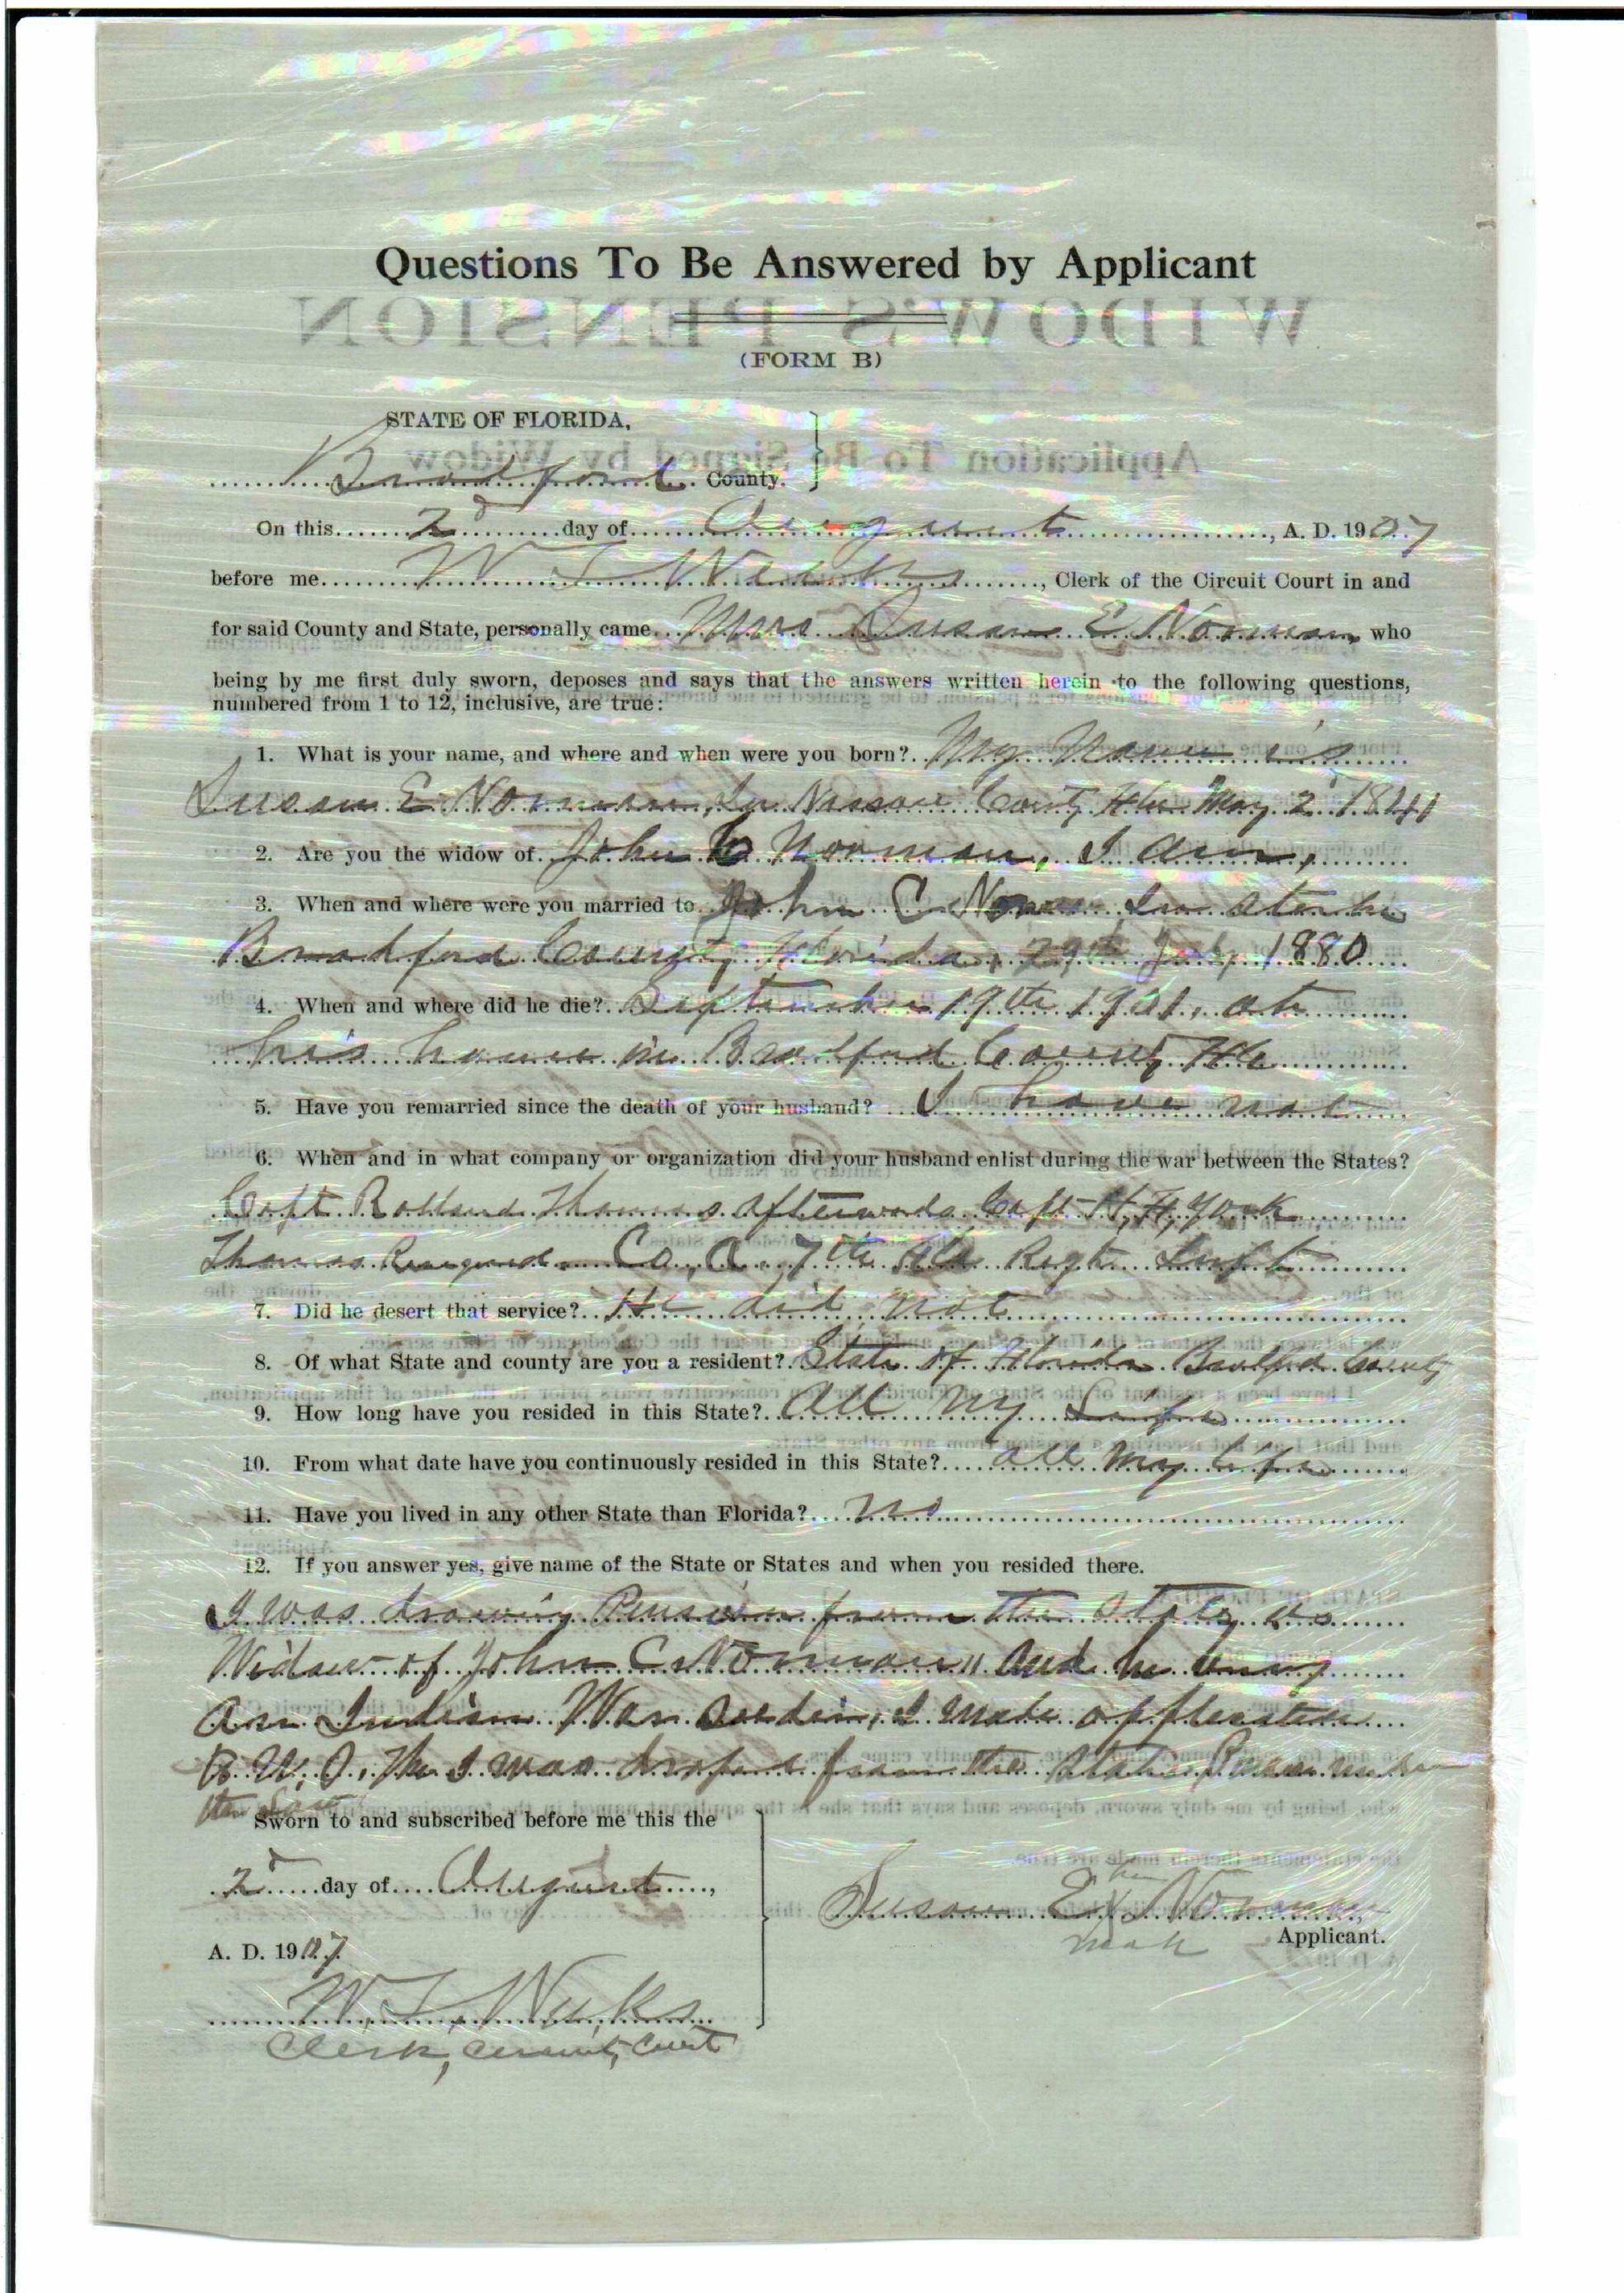 Questions To Be Answered by Applicant
WIDOW'S PENSION
(FORM B)
STATE OF FLORIDA,
Application To Be Signed by Widow
Bradford County.
On this 2d day of August, A. D. 1907
before me W T Weeks, Clerk of the Circuit Court in and
for said County and State, personally came Mrs Susan E Norman, who
being by me first duly sworn, deposes and says that the answers written herein to the following questions,
numbered from 1 to 12, inclusive, are true:
1. What is your name, and where and when were you born? My Name is
Susan E Norman, In Nassau County Fla May 2 1841
2. Are you the widow of John C Norman, I am,
3. When and where were you married to John C Norman In Starke
Bradford County Florida, 29th July 1880
4. When and where did he die? September 19th 1901, at
his home in Bradford County Fla
5. Have you remarried since the death of your husband? I have not
6. When and in what company or organization did your husband enlist during the war between the States?
Capt Rolland Thomas afterwards Capt H, H, York
Thomas Resigned Co, A, 7th Fla Regt Inft
7. Did he desert that service? He did not
8. Of what State and county are you a resident? State of Florida Bradford County
9. How long have you resided in this State? All My Life
10. From what date have you continuously resided in this State? all my life
11. Have you lived in any other State than Florida? no
12. If you answer yes, give name of the State or States and when you resided there.
I was drawing Pension from the State, as
Widow of John C Norman, And he being
An Indian War I made application
I was droped from the State Pension under
the law
Sworn to and subscribed before me this the
2d day of August,
A. D. 1907
Susan E her x Norman
mark
Applicant.
W. T. Weeks
Clerk, Circuit, Court